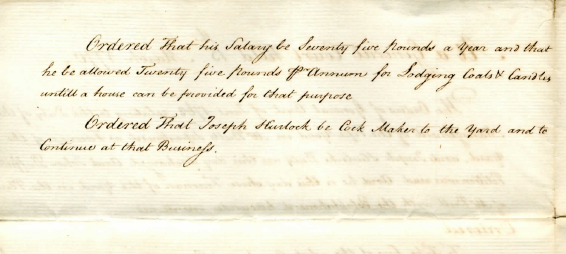 Ordered That his Salary be Seventy five Pounds a Year and that
he be allowed Twenty five Pounds ⅌ Annum for Lodging Coals & Candles
untill a house can be provided for that purpose
Ordered That Joseph Hurlock be Cock Maker to the Yard and to
Continue at that Business.